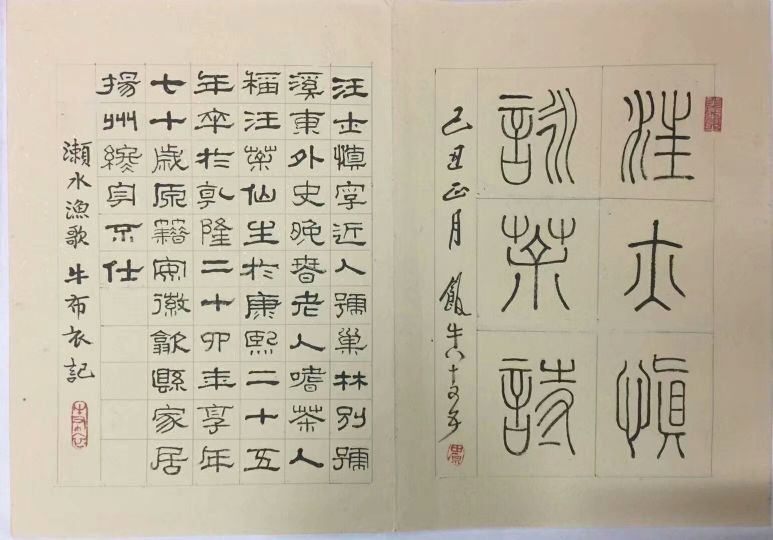 汪士慎
詠茶詩
己丑正月 飯牛八十
汪士慎字近人號巢林別號
溪東外史晚春老人嗜茶人
稱汪茶仙生於康熙二十五
年卒於乾隆二十四年享年
七十歲原籍安徽歙縣家居
揚州終身不仕
瀨水漁歌 牛布衣記